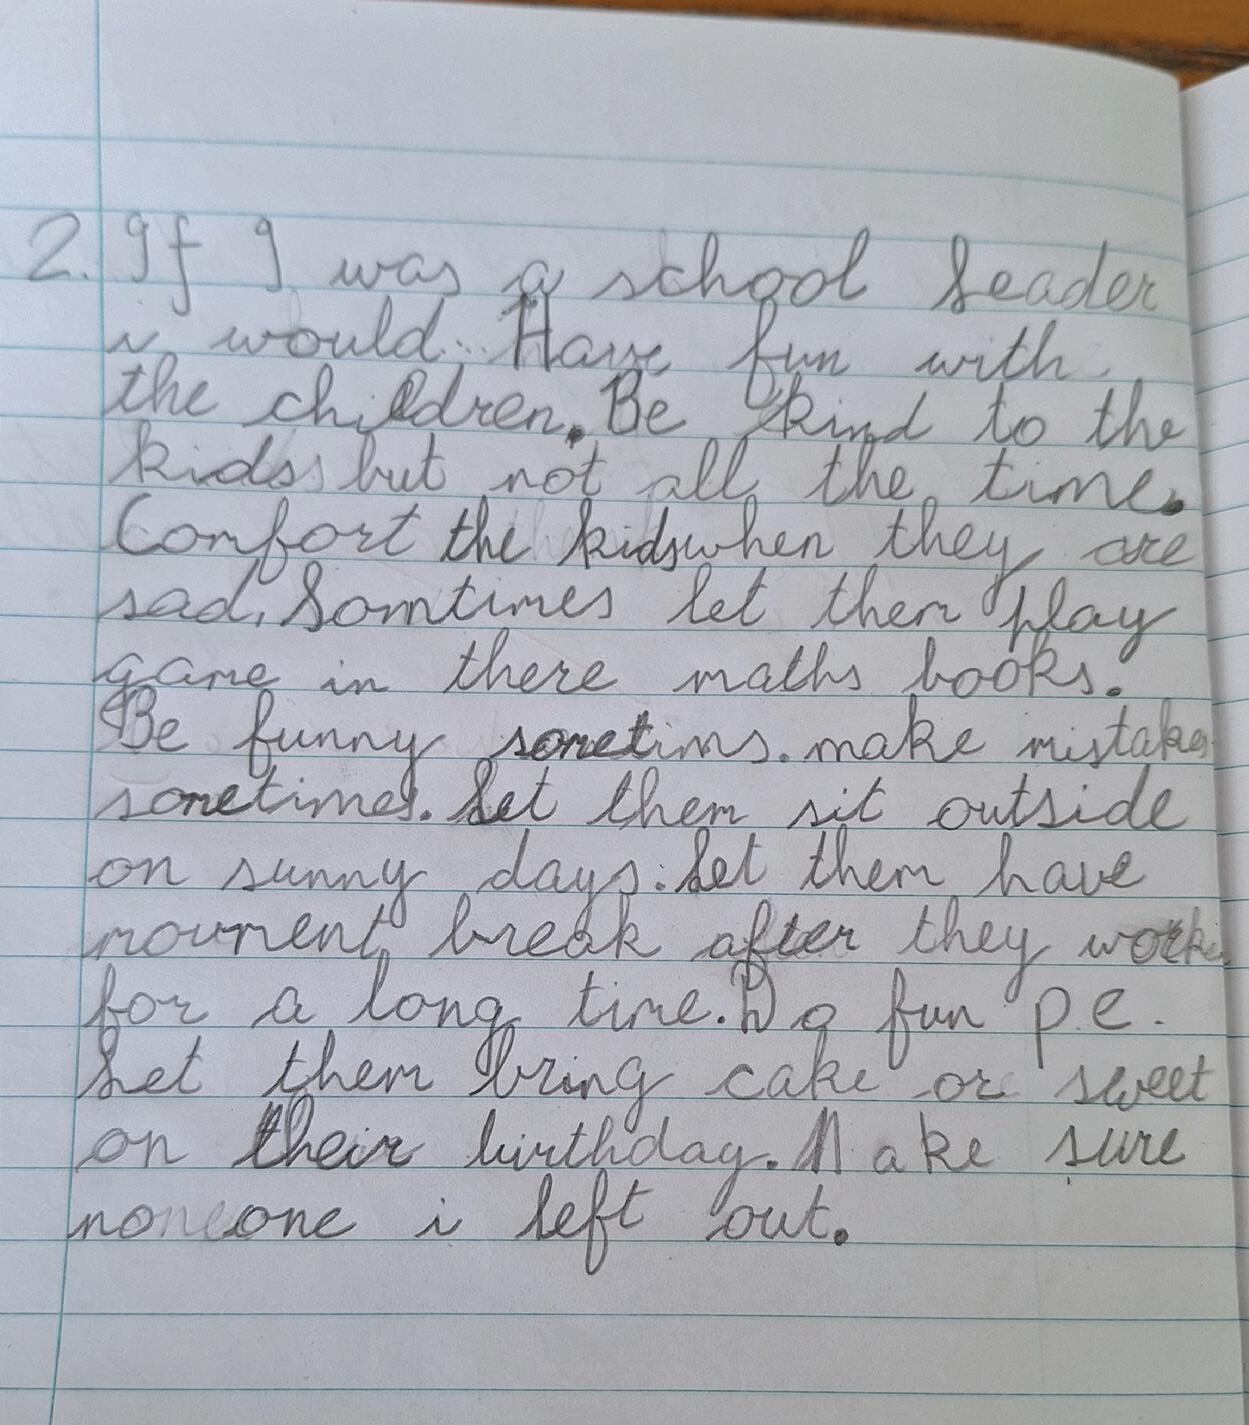 2. If I was a school leader
i would... Have fun with
the children. Be kind to the
kids but not all the time.
Comfort the kids when they are
sad. Somtimes let them play
game in there maths books.
Be funny sometims. make mistakes
sometimes. Let them sit outside
on sunny days. Let them have
movment break after they work
for a long time. Do fun p.e.
Let them bring cake or sweet
on their birthday. Make sure
no one i left out.